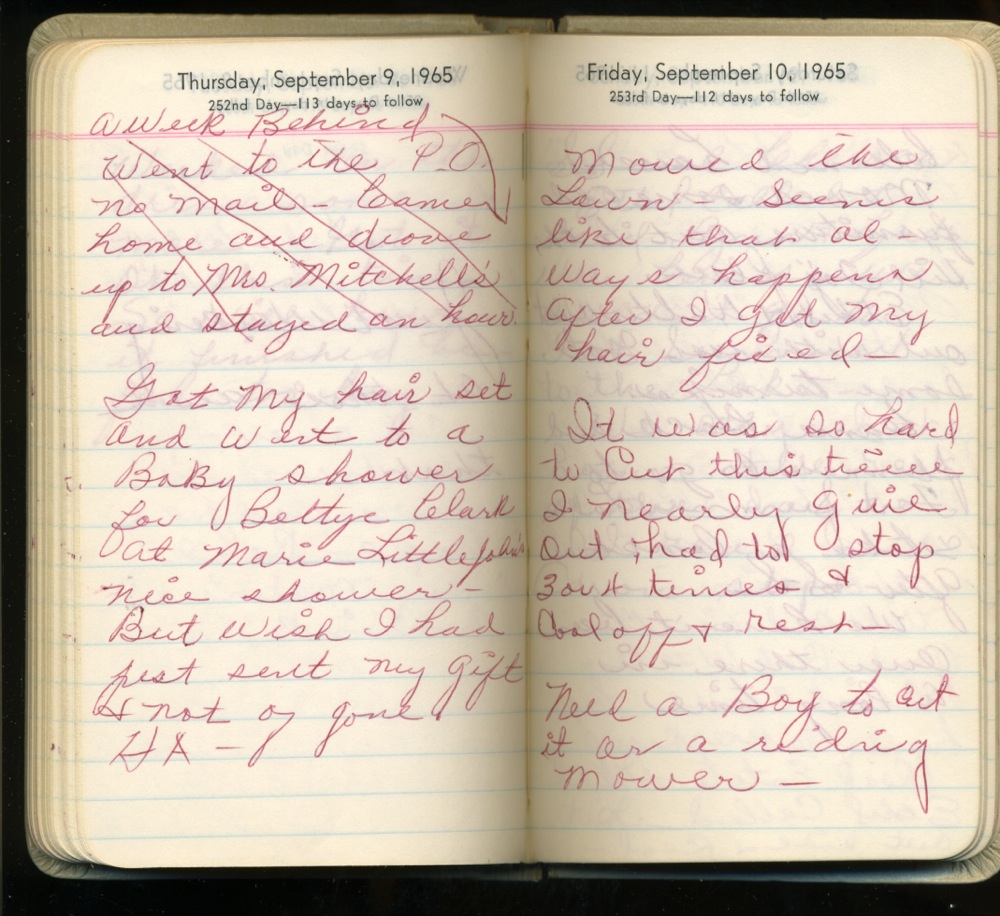 Thursday, September 9, 1965
252nd Day—113 days to follow
a week Behind
Went to the P.O.
no mail - Came
home and drove
up to Mrs. Mitchell's
and stayed an hour.
Got my hair set
and went to a
BaBy shower
for Bettye Clark
at Marie Littlejohn's
nice shower -
But wish I had
just sent my gift
& not of gone
HA -
Friday, September 10, 1965
253rd Day—112 days to follow
Mowed the
Lawn - Seems
like that al -
ways happens
after I get my
hair fixed -
It was so hard
to Cut this time
I nearly give
out, had to stop
3 or 4 times &
Cool off & rest -
Need a Boy to cut
it or a riding
Mower -